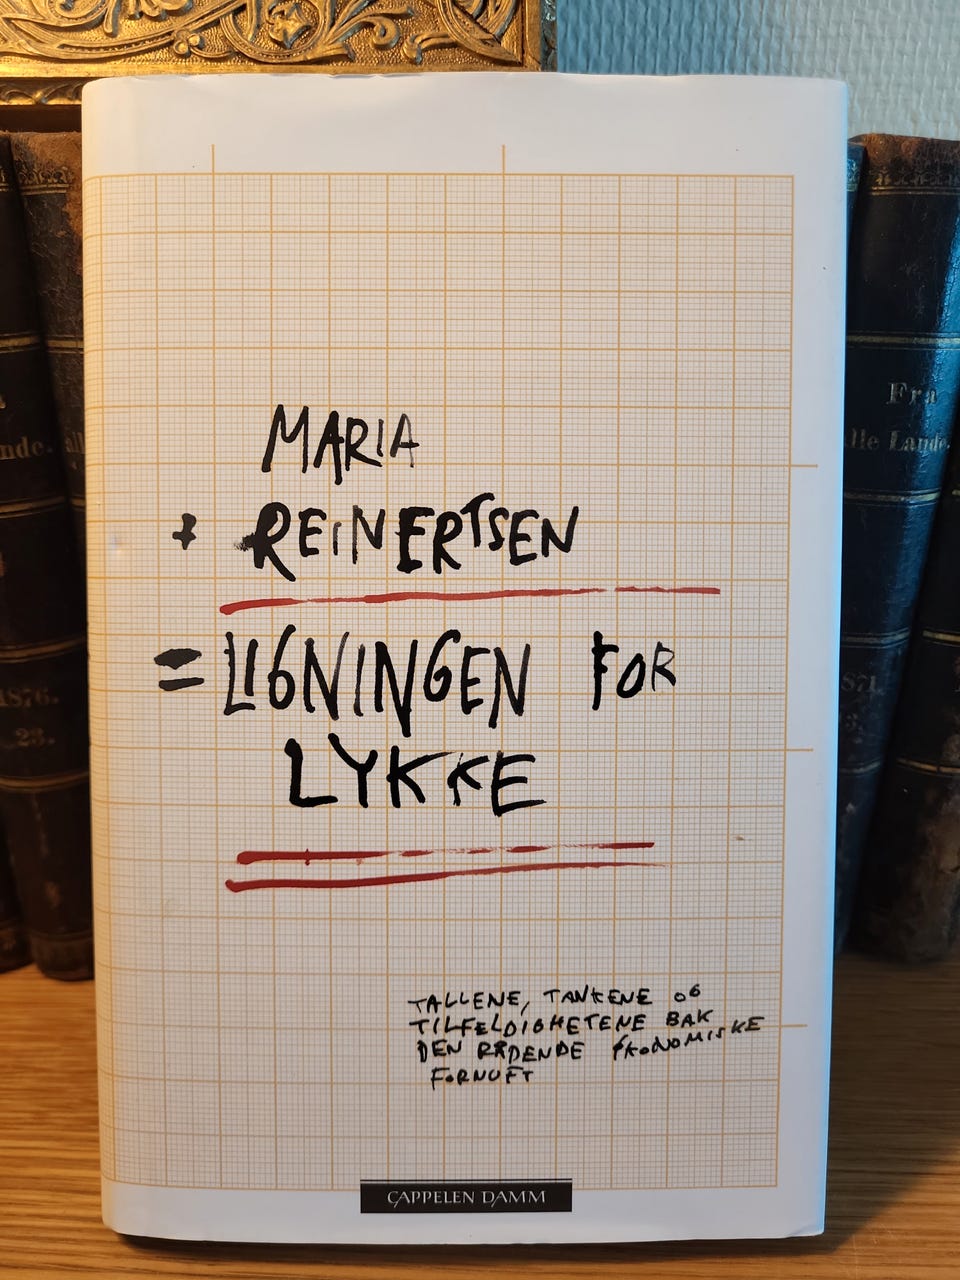 MARIA
+ REINERTSEN
= LIGNINGEN FOR
LYKKE
TALLENE, TANKENE OG
TILFELDIGHETENE BAK
DEN RÅDENDE ØKONOMISKE
FORNUFT
CAPPELEN DAMM
nde.
1876.
23.
Fra
alle Lande.
1871.